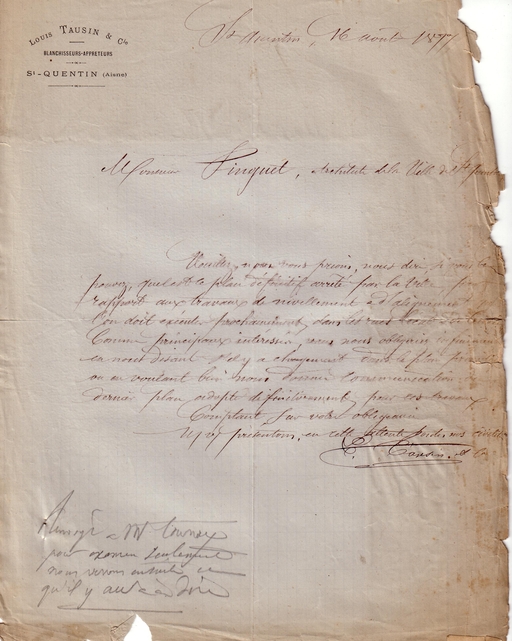 LOUIS TAUSIN & Cie
BLANCHISSEURS-APPRÊTEURS
St-QUENTIN (Aisne)
St Quentin, 16 août 1877
Monsieur Pinguet, Architecte de la Ville de St Quentin
Veuillez, nous vous prions, nous dire, si vous le
pouvez, quel est le plan définitif arrêté par la Ville
rapport aux travaux de nivellement & d'alignement
l'on doit exécuter prochainement dans les rues
Comme principaux intéressés, vous nous obligerez infiniment
en nous disant s'il y a changement dans le plan
ou en voulant bien nous donner communication
dernier plan adopté définitivement pour ces travaux.
Comptant sur votre obligeance
présentons, en cette attente, nos civilités
Tausin & Cie
Renvoyé à Mr
pour examen seulement
nous verrons ensuite ce
qu'il y aura à dire